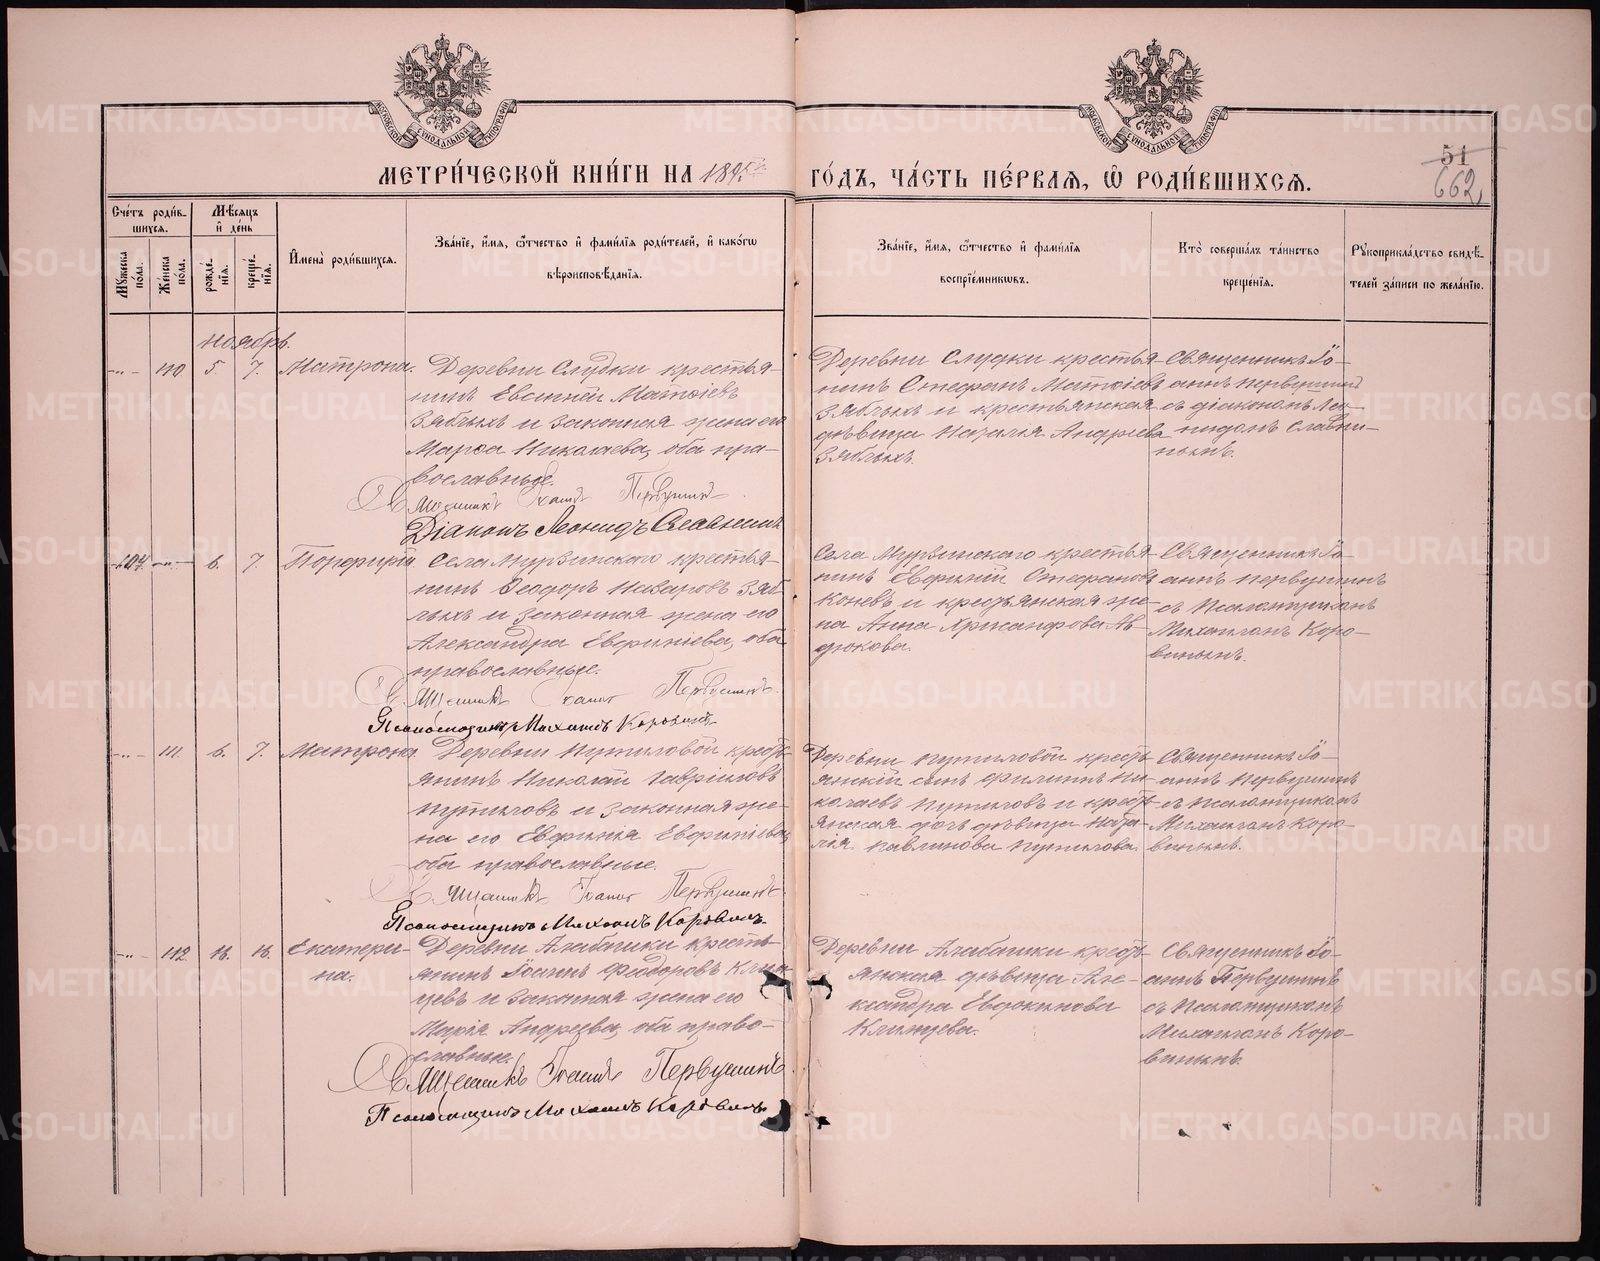 МЕТРИ́ЧЕСКОЙ КНИ́ГИ НА 1895й
ГО́ДЪ, ЧА́СТЬ ПЕ́РВАЯ, Ѡ РОДИ́ВШИХСЯ.
51
662,
Сче́тъ роди́в-
шихся.
Мѣсяцъ
и де́нь
Му́жеска
по́ла.
Же́нска
по́ла.
рожде́-
нія.
креще́-
нія.
Имена̀ роди́вшихся.
Зва́ніе, и́мя, ѻ҆́тчество и҆ фами́лія роди́телей, и҆ како́гѡ
вѣроисповѣ́данія.
Зва́ніе, и́мя, ѻ҆́тчество и҆ фами́лія
воспрїе́мникѡвъ.
Кто̀ соверша́лъ та́инство
креще́нія.
Рукоприкла́дство свидѣ́-
телей за́писи по жела́нію.
Ноябрь.
-„- 110 5. 7. Матрона.
Деревни Слудки крестья-
нинъ Евсигній Матѳіевъ
Зяблыхъ и законная жена его
Марѳа Николаева, оба пра-
вославные.
Священникъ Іоаннъ Первушинъ
Діаконъ Леонидъ Славнинъ
Деревни Слудки крестья-
нинъ Стефанъ Матѳіевъ
Зяблыхъ и крестьянская
дѣвица Наталія Андреева
Зяблыхъ.
Священникъ Іо-
аннъ Первушинъ
съ діакономъ Лео-
нидомъ Славни-
нымъ.
104. -„- 6. 7. Порфирій
Села Мурзинского крестья-
нинъ Ѳеодоръ Назаровъ Зяб-
лыхъ и законная жена его
Александра Евфиміева, оба
православные.
Священникъ Іоаннъ Первушинъ
Псаломщикъ Михаилъ Коровинъ
Села Мурзинского крестья-
нинъ Евфимій Стефановъ
Коневъ и крестьянская же-
на Анна Хрисанфова
Священникъ Іо-
аннъ Первушинъ
съ Псаломщикомъ
Михаиломъ Коро-
винымъ.
-„- 111. 6. 7. Матрона
Деревни Путиловой кресть-
янинъ Николай Гавріиловъ
Путиловъ и законная же-
на его Евфимія Евфиміева,
оба православные.
Священникъ Іоаннъ Первушинъ
Псаломщикъ Михаилъ Коровинъ.
Деревни Путиловой кресть-
янскій сынъ Филиппъ Ни-
колаевъ Путиловъ и кресть-
янская дочь дѣвица Ната-
лія Павлинова Путилова.
Священникъ Іо-
аннъ Первушинъ
съ Псаломщикомъ
Михаиломъ Коро-
винымъ.
-„- 112 16. Екатери-
на.
Деревни Алабашки кресть-
янинъ Іоаннъ Феодоровъ Клим-
цевъ и законная жена его
Марія Андреева, оба право-
славные.
Священникъ Іоаннъ Первушинъ
Псаломщикъ Михаилъ Коровинъ
Деревни Алабашки кресть-
янская дѣвица Але-
ксандра Евдокимова
Климцева.
Священникъ Іо-
аннъ Первушинъ
съ Псаломщикомъ
Михаиломъ Коро-
винымъ.
METRIKI.GASO-URAL.RU